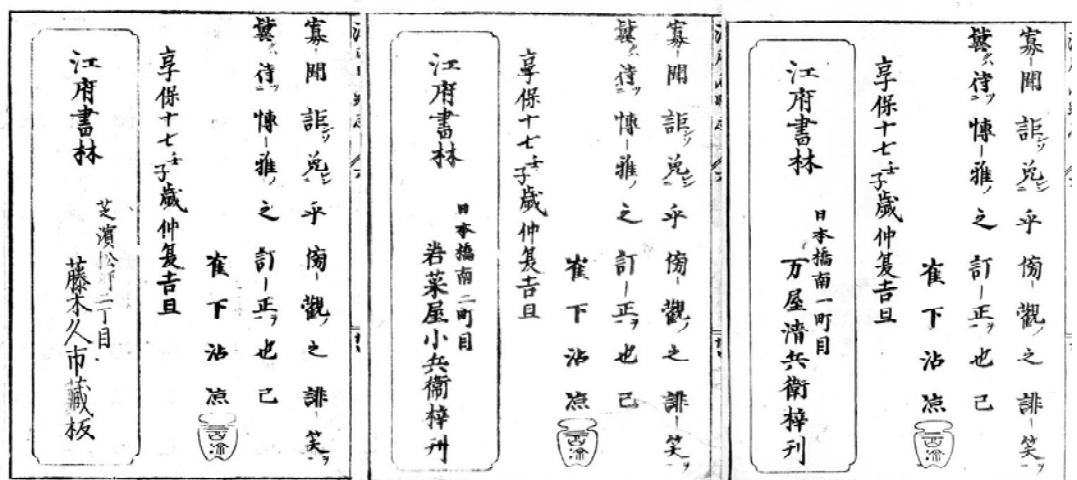 寡聞詎免乎傍觀之誹笑
興待博雅之訂正也已
崔下沾凉
享保十七壬子歳仲夏吉旦
江府書林
日本橋南一町目
万屋清兵衛梓刊
寡聞詎免乎傍觀之誹笑
待博雅之訂正也已
崔下沾凉
享保十七壬子歳仲夏吉旦
江府書林
日本橋南二町目
岩菜屋小兵衛梓刊
寡聞詎免乎傍觀之誹笑
待博雅之訂正也已
崔下沾凉
享保十七壬子歳仲夏吉旦
江府書林
芝濱松町二丁目
藤木久市藏板